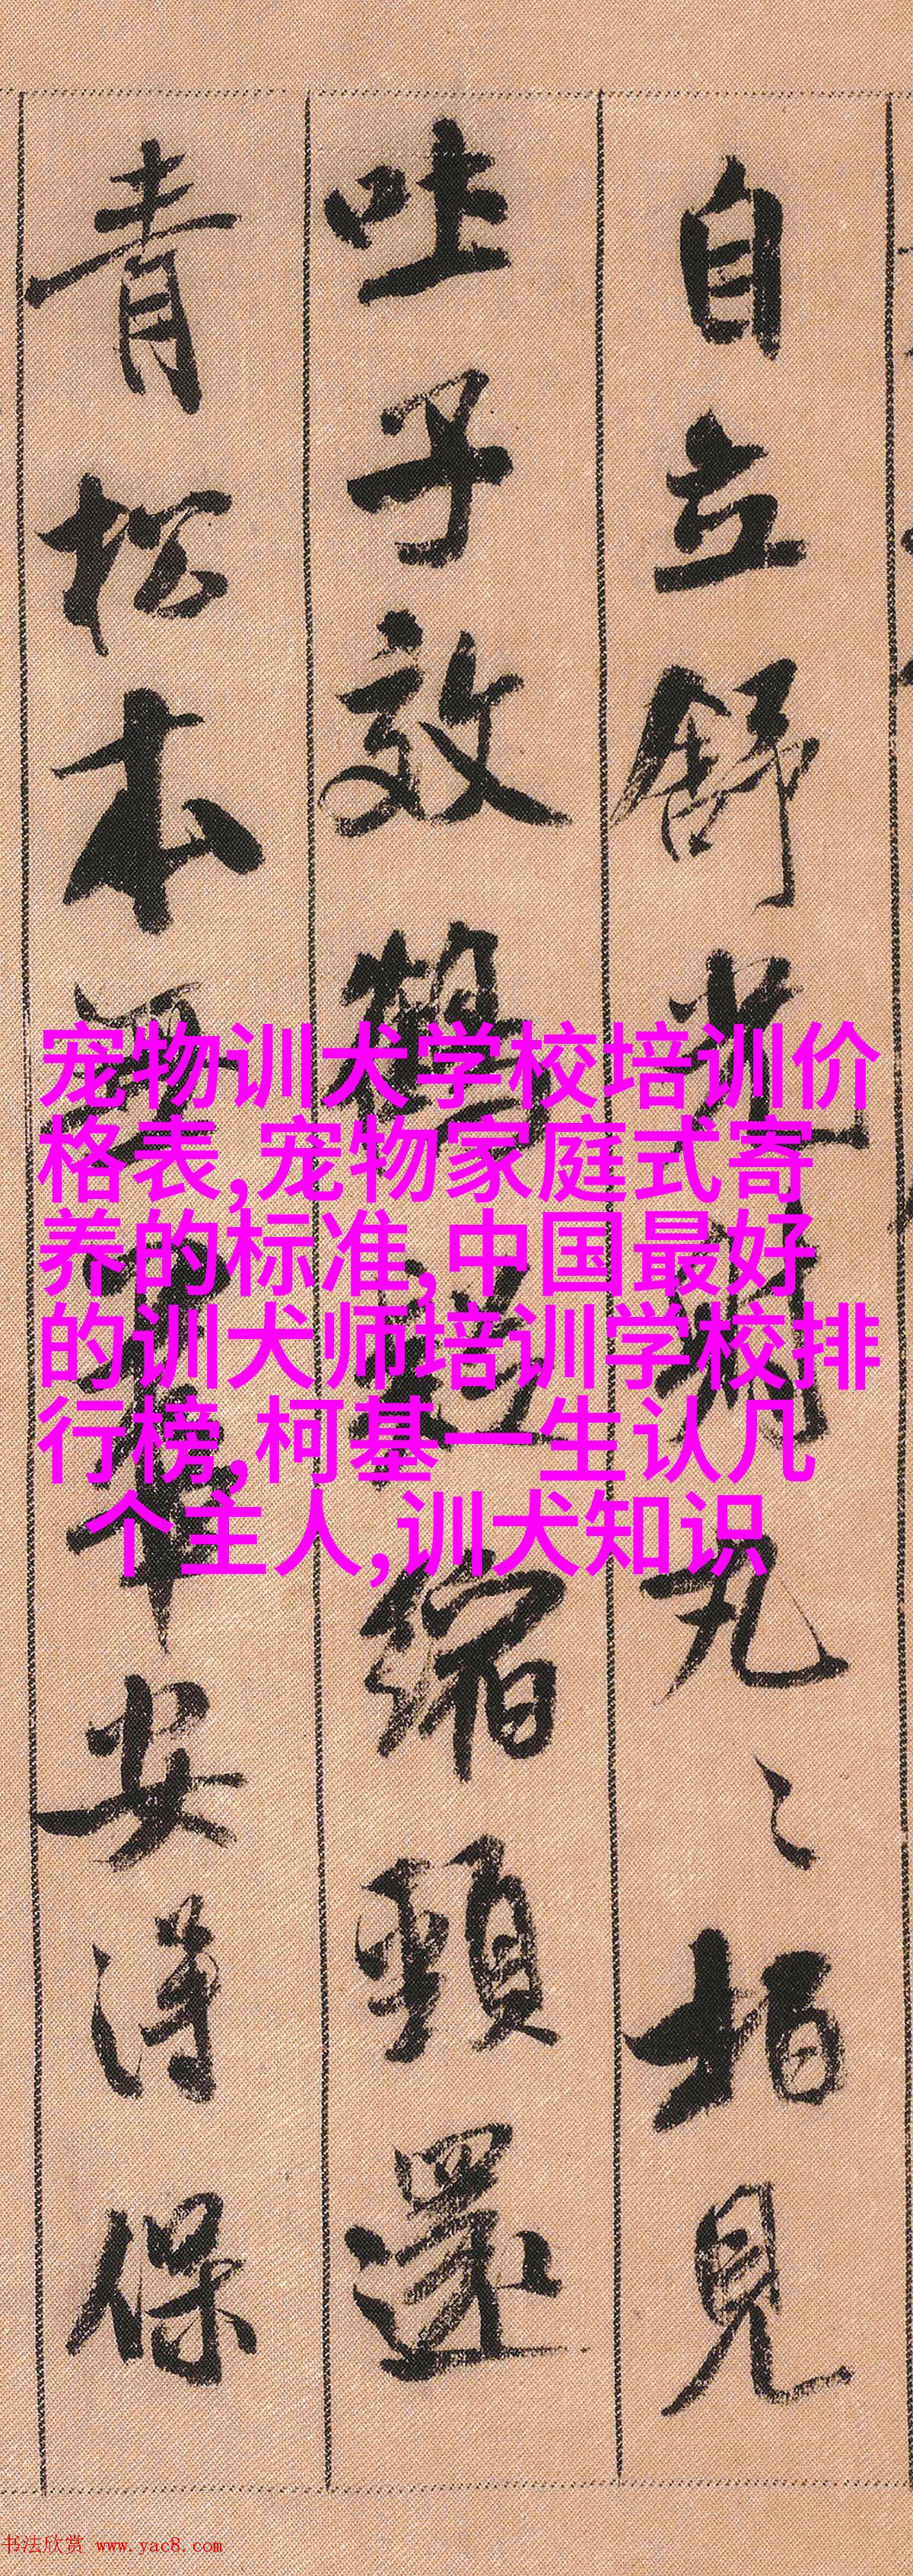 自立舒光丸〻柏見
吐子效鶴縮頸還
青松本華安得保
宠物训犬学校培训价
格表,宠物家庭式寄
养的标准,中国最好
的训犬师培训学校排
行榜,柯基一生认几
个主人,训犬知识
书法欣赏 www.yac8.com